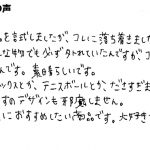 の声
を試しましたが、コレに落ち着きました
な物でも必ずタトれていたんですが、コ
んです。素晴らしいです。
ックスとか、テニスボールとか、ださすぎま
すめデザインも邪魔しません。
におすすめしたい商品です。大好き